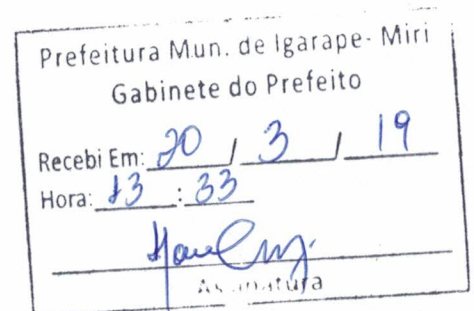 Prefeitura Mun. de Igarape- Miri
Gabinete do Prefeito
Recebi Em: 20 / 3 / 19
Hora: 13 : 33
Assinatura